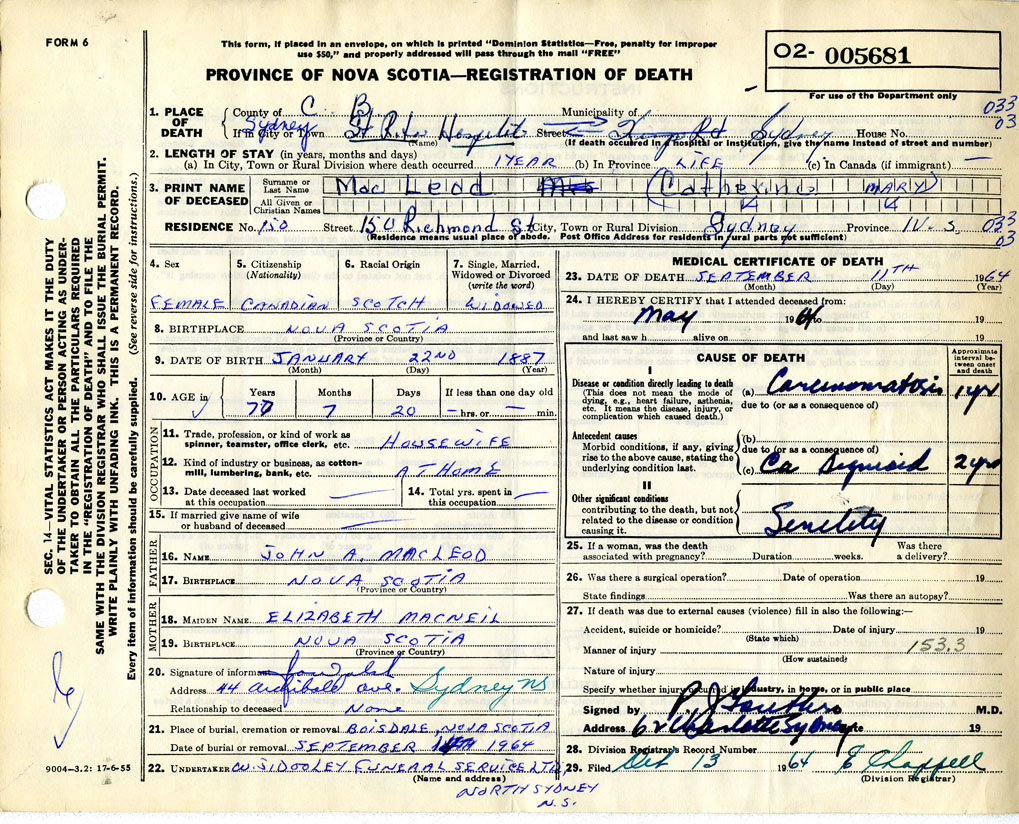 FORM 6
This form, if placed in an envelope, on which is printed "Dominion Statistics—Free, penalty for improper
use $50," and properly addressed will pass through the mail "FREE"
PROVINCE OF NOVA SCOTIA—REGISTRATION OF DEATH
O2- 005681
For use of the Department only
1. PLACE OF DEATH
County of C. B Municipality of 033
Sydney 03
If in City or Town St Rita Hospital Street Kings Rd Sydney House No.
(Name) (If death occurred in a hospital or institution, give the name instead of street and number)
2. LENGTH OF STAY (in years, months and days)
(a) In City, Town or Rural Division where death occurred 1 YEAR (b) In Province LIFE (c) In Canada (if immigrant) —
3. PRINT NAME OF DECEASED
Surname or Last Name Mac Leod Mrs (Catherine MARY)
All Given or Christian Names
RESIDENCE No. 150 Street 150 Richmond St City, Town or Rural Division Sydney Province N. S. 033
03
(Residence means usual place of abode. Post Office Address for residents in rural parts not sufficient)
4. Sex FEMALE
5. Citizenship (Nationality) CANADIAN
6. Racial Origin SCOTCH
7. Single, Married, Widowed or Divorced (write the word) WIDOWED
8. BIRTHPLACE NOVA SCOTIA
(Province or Country)
9. DATE OF BIRTH JANUARY 22ND 1887
(Month) (Day) (Year)
10. AGE in Years Months Days If less than one day old
77 7 20 — hrs. or — min.
OCCUPATION
11. Trade, profession, or kind of work as spinner, teamster, office clerk, etc. HOUSEWIFE
12. Kind of industry or business, as cotton-mill, lumbering, bank, etc. AT HOME
13. Date deceased last worked at this occupation —
14. Total yrs. spent in this occupation —
15. If married give name of wife or husband of deceased —
FATHER
16. NAME JOHN A. MACLEOD
17. BIRTHPLACE NOVA SCOTIA
(Province or Country)
MOTHER
18. MAIDEN NAME ELIZABETH MACNEIL
19. BIRTHPLACE NOVA SCOTIA
(Province or Country)
20. Signature of informant
Address 44 Archibald ave. Sydney NS
Relationship to deceased None
21. Place of burial, cremation or removal BOISDALE, NOVA SCOTIA
Date of burial or removal SEPTEMBER 1964
22. UNDERTAKER W. J. DOOLEY FUNERAL SERVICE LTD
(Name and address)
NORTH SYDNEY
N.S.
MEDICAL CERTIFICATE OF DEATH
23. DATE OF DEATH SEPTEMBER 11TH 1964
(Month) (Day) (Year)
24. I HEREBY CERTIFY that I attended deceased from:
May 1964 to 19
and last saw h alive on 19
CAUSE OF DEATH
Approximate interval between onset and death
I
Disease or condition directly leading to death
(This does not mean the mode of dying, e.g., heart failure, asthenia, etc. It means the disease, injury, or complication which caused death.)
(a) Carcinomatosis 1 yr
due to (or as a consequence of)
Antecedent causes
Morbid conditions, if any, giving rise to the above cause, stating the underlying condition last.
(b)
due to (or as a consequence of)
(c) Ca Sigmoid 2 yrs
II
Other significant conditions
contributing to the death, but not related to the disease or condition causing it.
Senility
25. If a woman, was the death associated with pregnancy? Duration weeks. Was there a delivery?
26. Was there a surgical operation? Date of operation 19
State findings Was there an autopsy?
27. If death was due to external causes (violence) fill in also the following:—
Accident, suicide or homicide? Date of injury 19
(State which)
Manner of injury 153.3
(How sustained)
Nature of injury
Specify whether injury occurred in industry, in home, or in public place
Signed by M.D.
Address 62 Charlotte Sydney Date 19
28. Division Registrar's Record Number
29. Filed Oct 13 1964 E Chappell
(Division Registrar)
SEC. 14—VITAL STATISTICS ACT MAKES IT THE DUTY
OF THE UNDERTAKER OR PERSON ACTING AS UNDER-
TAKER TO OBTAIN ALL THE PARTICULARS REQUIRED
IN THE "REGISTRATION OF DEATH" AND TO FILE THE
SAME WITH THE DIVISION REGISTRAR WHO SHALL ISSUE THE BURIAL PERMIT.
WRITE PLAINLY WITH UNFADING INK. THIS IS A PERMANENT RECORD.
Every item of information should be carefully supplied. (See reverse side for instructions.)
9004-3.2: 17-6-55